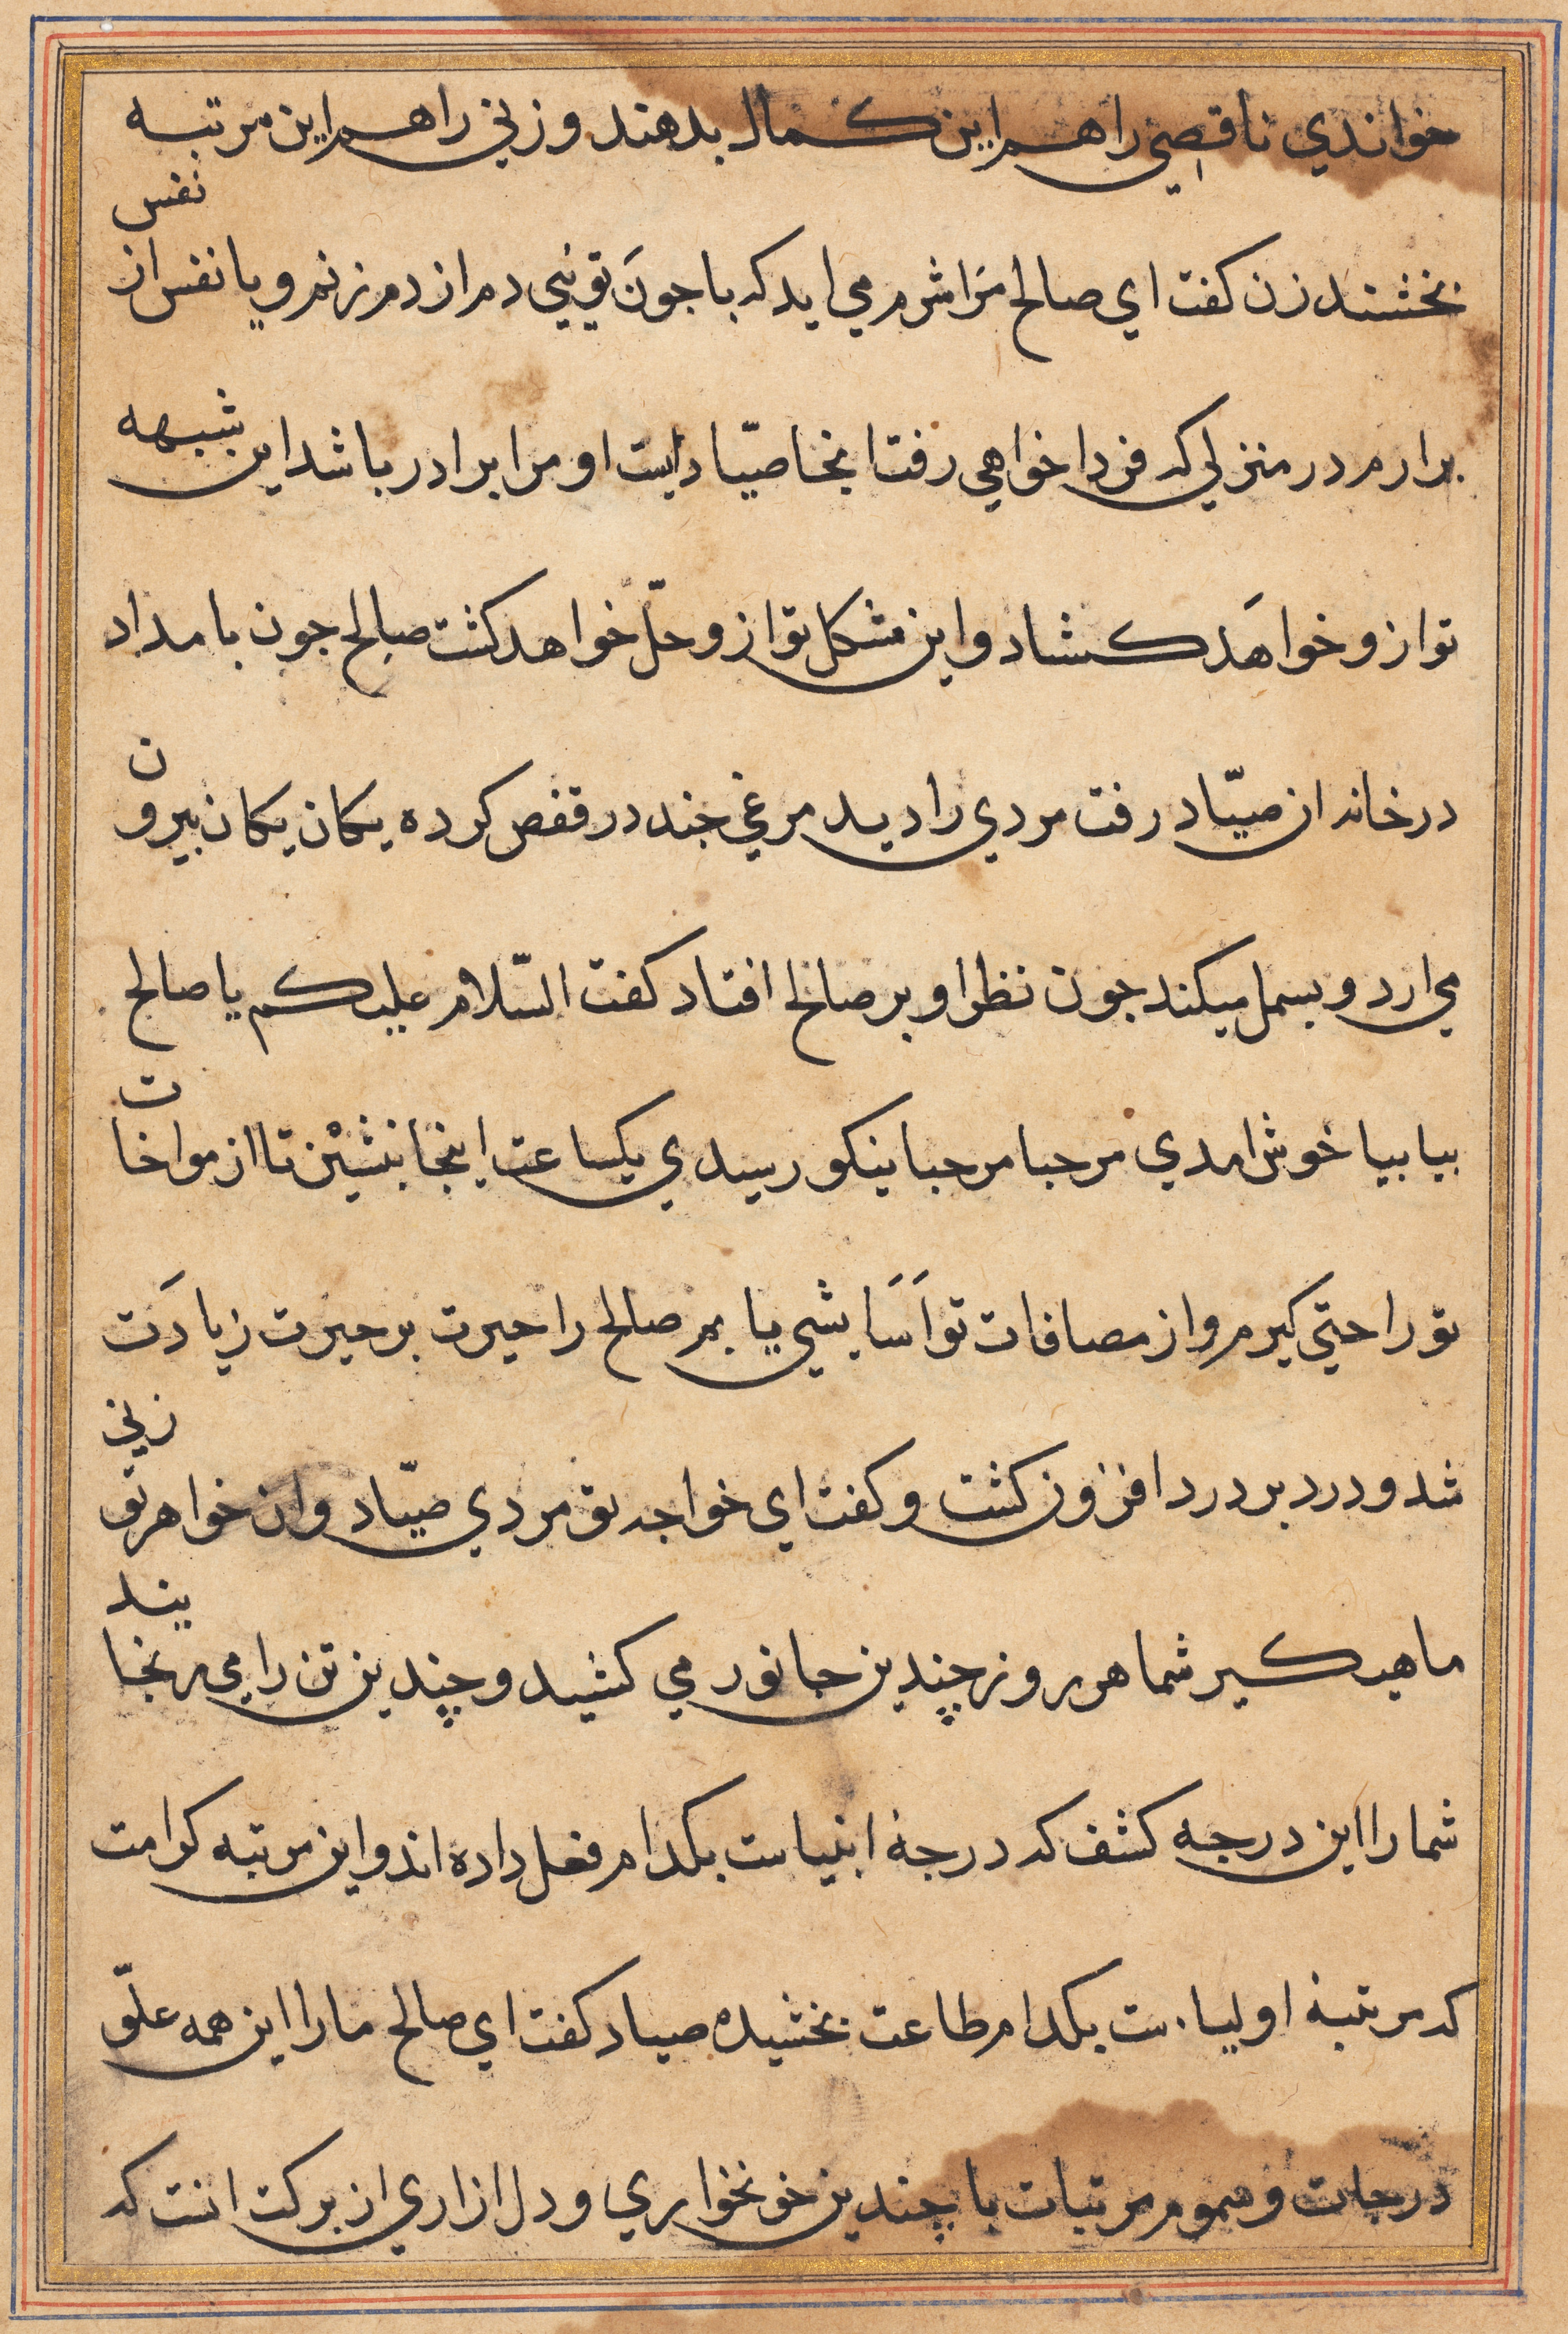 خواندي ناقصي را هم اين كمال بدهند و زني را هم اين مرتبه
بخشند زن كفت اي صالح مَرا شرم مي ايد كه با جونَ تويني دم از دم زنم و يا نفس از نفس
برارم در منزلي كه فردا خواهي رفت انجا صيّاديست او مرا برادر باشد اين شبهه
تو ازو خواهَد كشاد و اين مشكل تو ازو حلّ خواهد كشت صالح جون بامداد
در خانه ان صيّاد رفت مردي را ديد مرغي جند در قفص كرده يكان يكان بيرون
مي ارد و بسمل ميكند جون نظر او بر صالح افتاد كفت السّلام عليكم يا صالح
بيا بيا خوش امدي مرحبا مرحبا نيكو رسيدي يكساعت اينجا بنشيْن تا از مواخات
تو راحتي كيرم و از مصافات تو اَسَايشي يابم صالح را حيرت بر حيرت زيادَت
شد و درد بر درد افزون كشت و كفت اي خواجه تو مردي صيّاد و ان خواهر تو زني
ماهي كير شما هر روز چندين جانور مي كشيد و چندين تن را مي رنجانيد
شما را اين درجه كشف كه درجهٔ انبياست بكدام فعل داده اند و اين مرتبه كرامت
كه مرتبهٔ اولياست بكدام طاعت بخشيده صياد كفت اي صالح ما را اين همه علوّ
درجات و سمو مرتبات با چندين خونخواري و دل ازاري از بركت انت كه